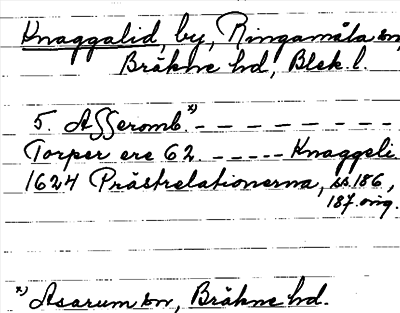 Knaggalid, by, Ringamåla sn,
Bräkne hd, Blek. l.
5. Asseromb.*) - - - - - - - -
Torper ere 62. - - - - - Knaggeli
1624 Prästrelationerna, ss 186,
187. orig.
*) Asarum sn, Bräkne hd.